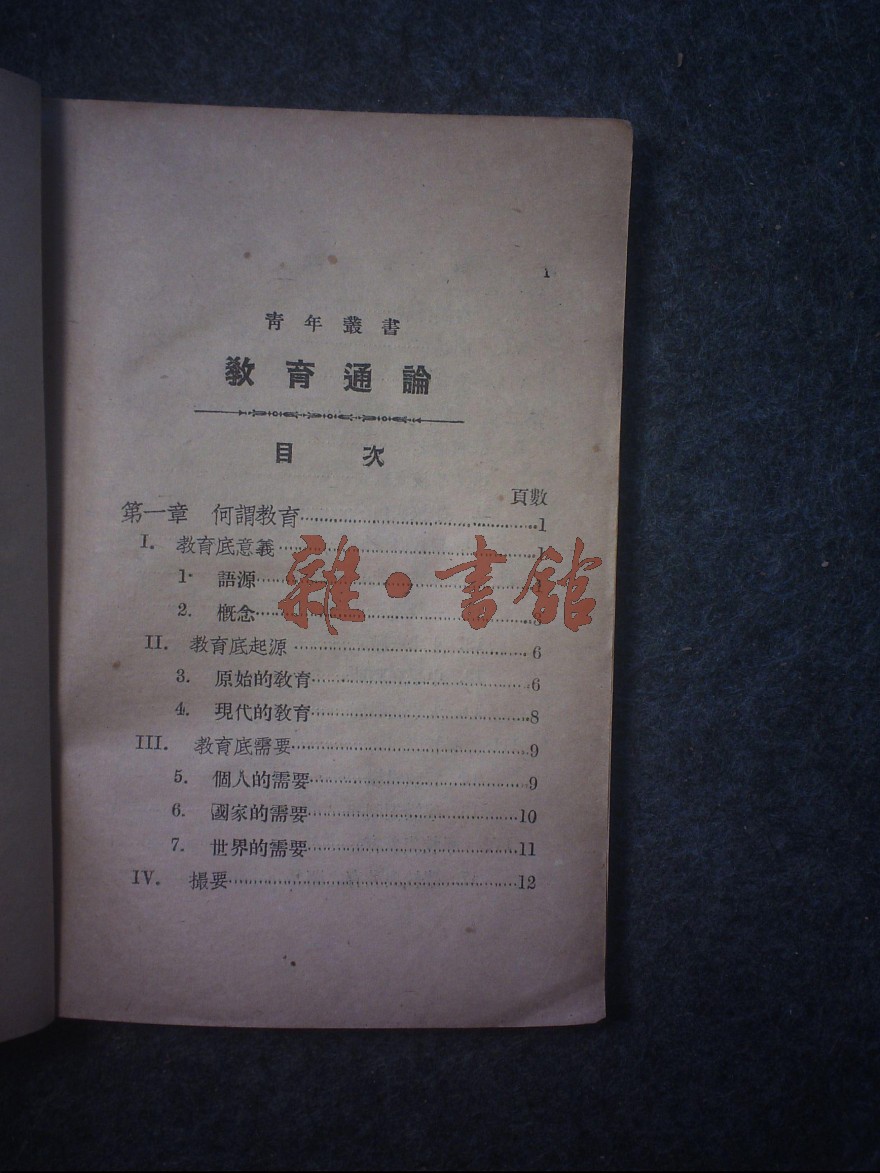 1
青年叢書
敎育通論
目次
頁數
第一章 何謂教育……1
I. 教育底意義……1
1. 語源……
2. 概念……
II. 教育底起源……6
3. 原始的敎育……6
4. 現代的敎育……8
III. 教育底需要……9
5. 個人的需要……9
6. 國家的需要……10
7. 世界的需要……11
IV. 撮要……12
雜·書舘